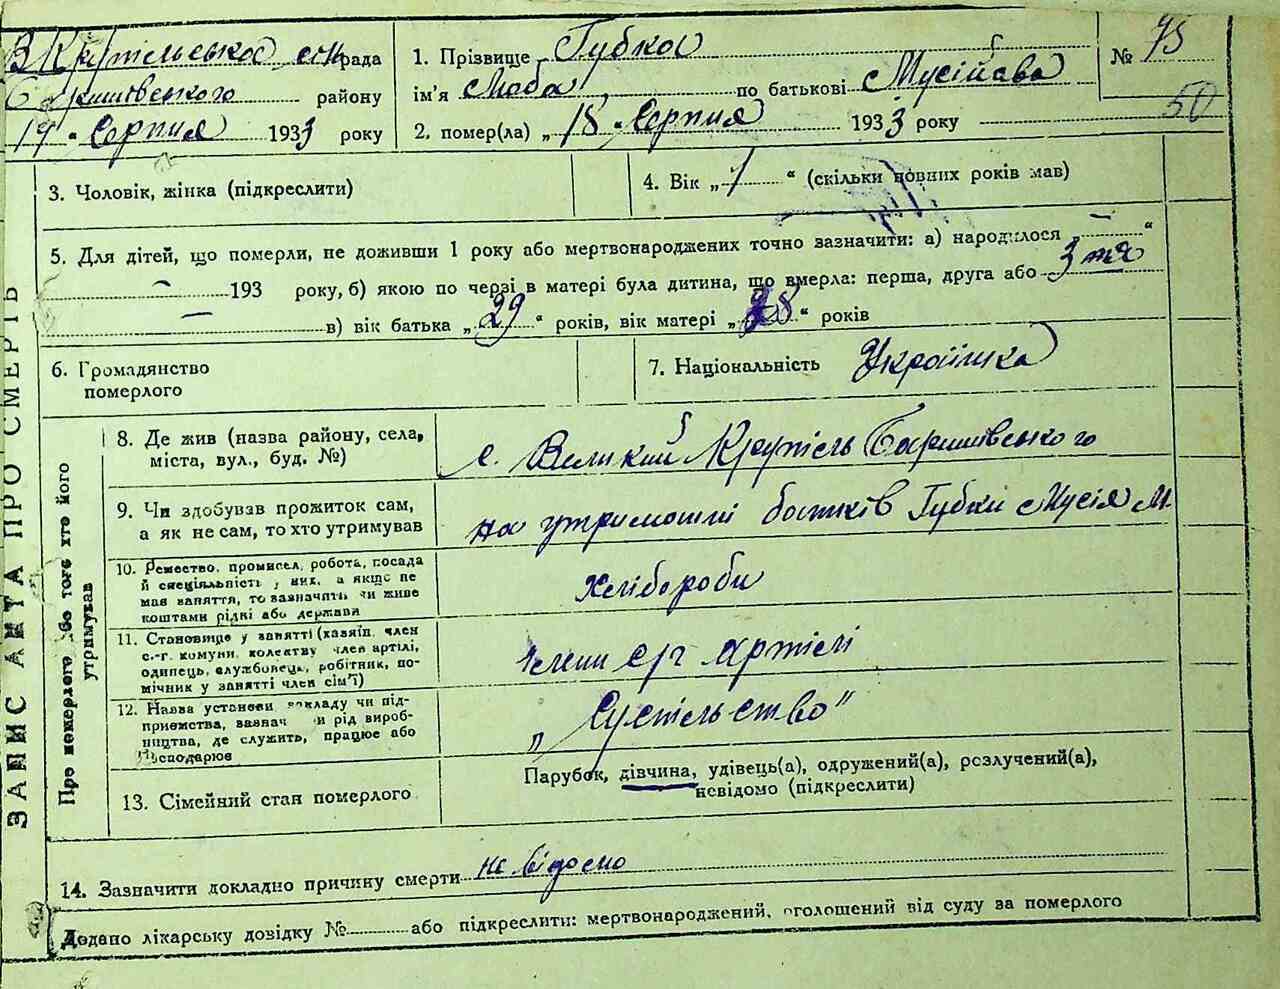 В Крутільська сільрада
Баришівського району
"19" Серпня 1933 року
1. Прізвище Губка
ім'я Люба по батькові Мусійовна
2. помер(ла) „18" Серпня 1933 року
№ 75
50
ЗАПИС АКТА ПРО СМЕРТЬ
3. Чоловік, жінка (підкреслити)
4. Вік „1" (скільки повних років мав)
5. Для дітей, що померли, не доживши 1 року або мертвонароджених точно зазначити: а) народилося „–"
– 193 року, б) якою по черзі в матері була дитина, що вмерла: перша, друга або 3 тя
– в) вік батька „29" років, вік матері „28" років
6. Громадянство
померлого
7. Національність Українка
Про померлого або того хто його утримував
8. Де жив (назва району, села,
міста, вул., буд. №)
с. Великий Крупіль Баришівського
9. Чи здобував прожиток сам,
а як не сам, то хто утримував
на утриманні батьків Губки Мусія М.
10. Ремество, промисел, робота, посада
й спеціяльність у них, а якщо не
мав заняття, то зазначить чи живе
коштами рідні або держави
Хлібороби
11. Становище у занятті (хазяїн, член
с.-г. комуни, колективу член артілі,
одинець, службовець, робітник, по-
мічник у занятті член сім'ї)
члени с/г артілі
12. Назва установи, закладу чи під-
приємства, зазнач чи рід вироб-
ництва, де служить, працює або
господарює
„Суспільство"
13. Сімейний стан померлого
Парубок, дівчина, удівець(а), одружений(а), розлучений(а),
невідомо (підкреслити)
14. Зазначити докладно причину смерти не відомо
Додано лікарську довідку № або підкреслити: мертвонароджений, оголошений від суду за померлого